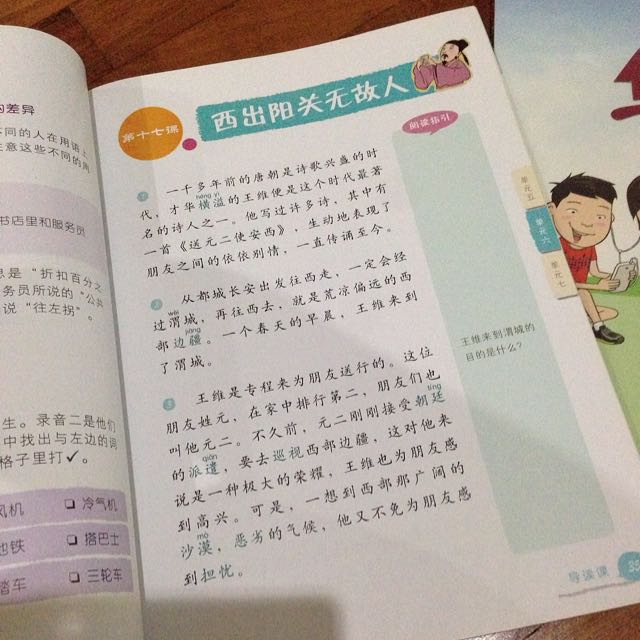 的差异
不同的人在用语上
注意这些不同的用
书店里和服务员
思是“折扣百分之
务员所说的“公共
说“往左拐”。
生。录音二是他们
中找出与左边的词
格子里打✓。
风机
❑ 冷气机
地铁
❑ 搭巴士
踏车
❑ 三轮车
第十七课
西出阳关无故人
阅读指引
1
一千多年前的唐朝是诗歌兴盛的时
héng yì
代，才华横溢的王维便是这个时代最著
名的诗人之一。他写过许多诗，其中有
一首《送元二使安西》，生动地表现了
朋友之间的依依别情，一直传诵至今。
2
从都城长安出发往西走，一定会经
wèi
过渭城，再往西去，就是荒凉偏远的西
jiāng
部边疆。一个春天的早晨，王维来到
了渭城。
3
王维是专程来为朋友送行的。这位
朋友姓元，在家中排行第二，朋友们也
tíng
叫他元二。不久前，元二刚刚接受朝廷
qiǎn
的派遣，要去巡视西部边疆，这对他来
说是一种极大的荣耀，王维也为朋友感
到高兴。可是，一想到西部那广阔的
mò
沙漠，恶劣的气候，他又不免为朋友感
到担忧。
王维来到渭城的
目的是什么？
单元五
单元六
单元七
导读课